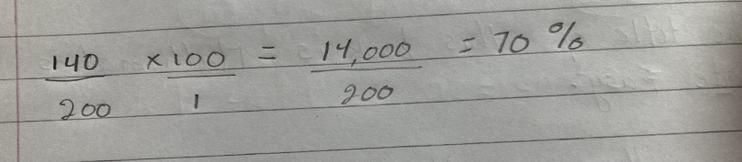 140/200 × 100/1 = 14,000/200 = 70 %